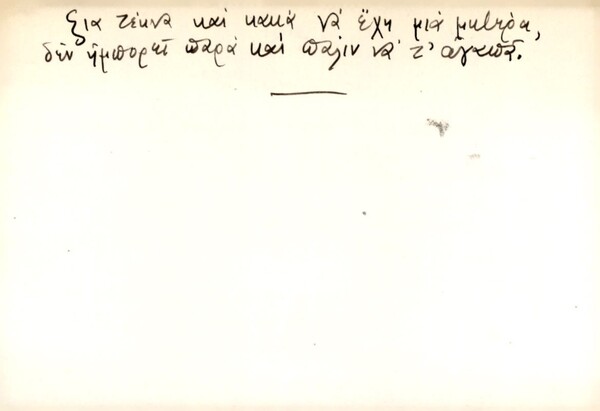 ξια τέκνα καὶ κακὰ νὰ ἔχῃ μιὰ μητέρα,
δὲν ἠμπορεῖ παρὰ καὶ πάλιν νὰ τ' ἀγαπᾷ.